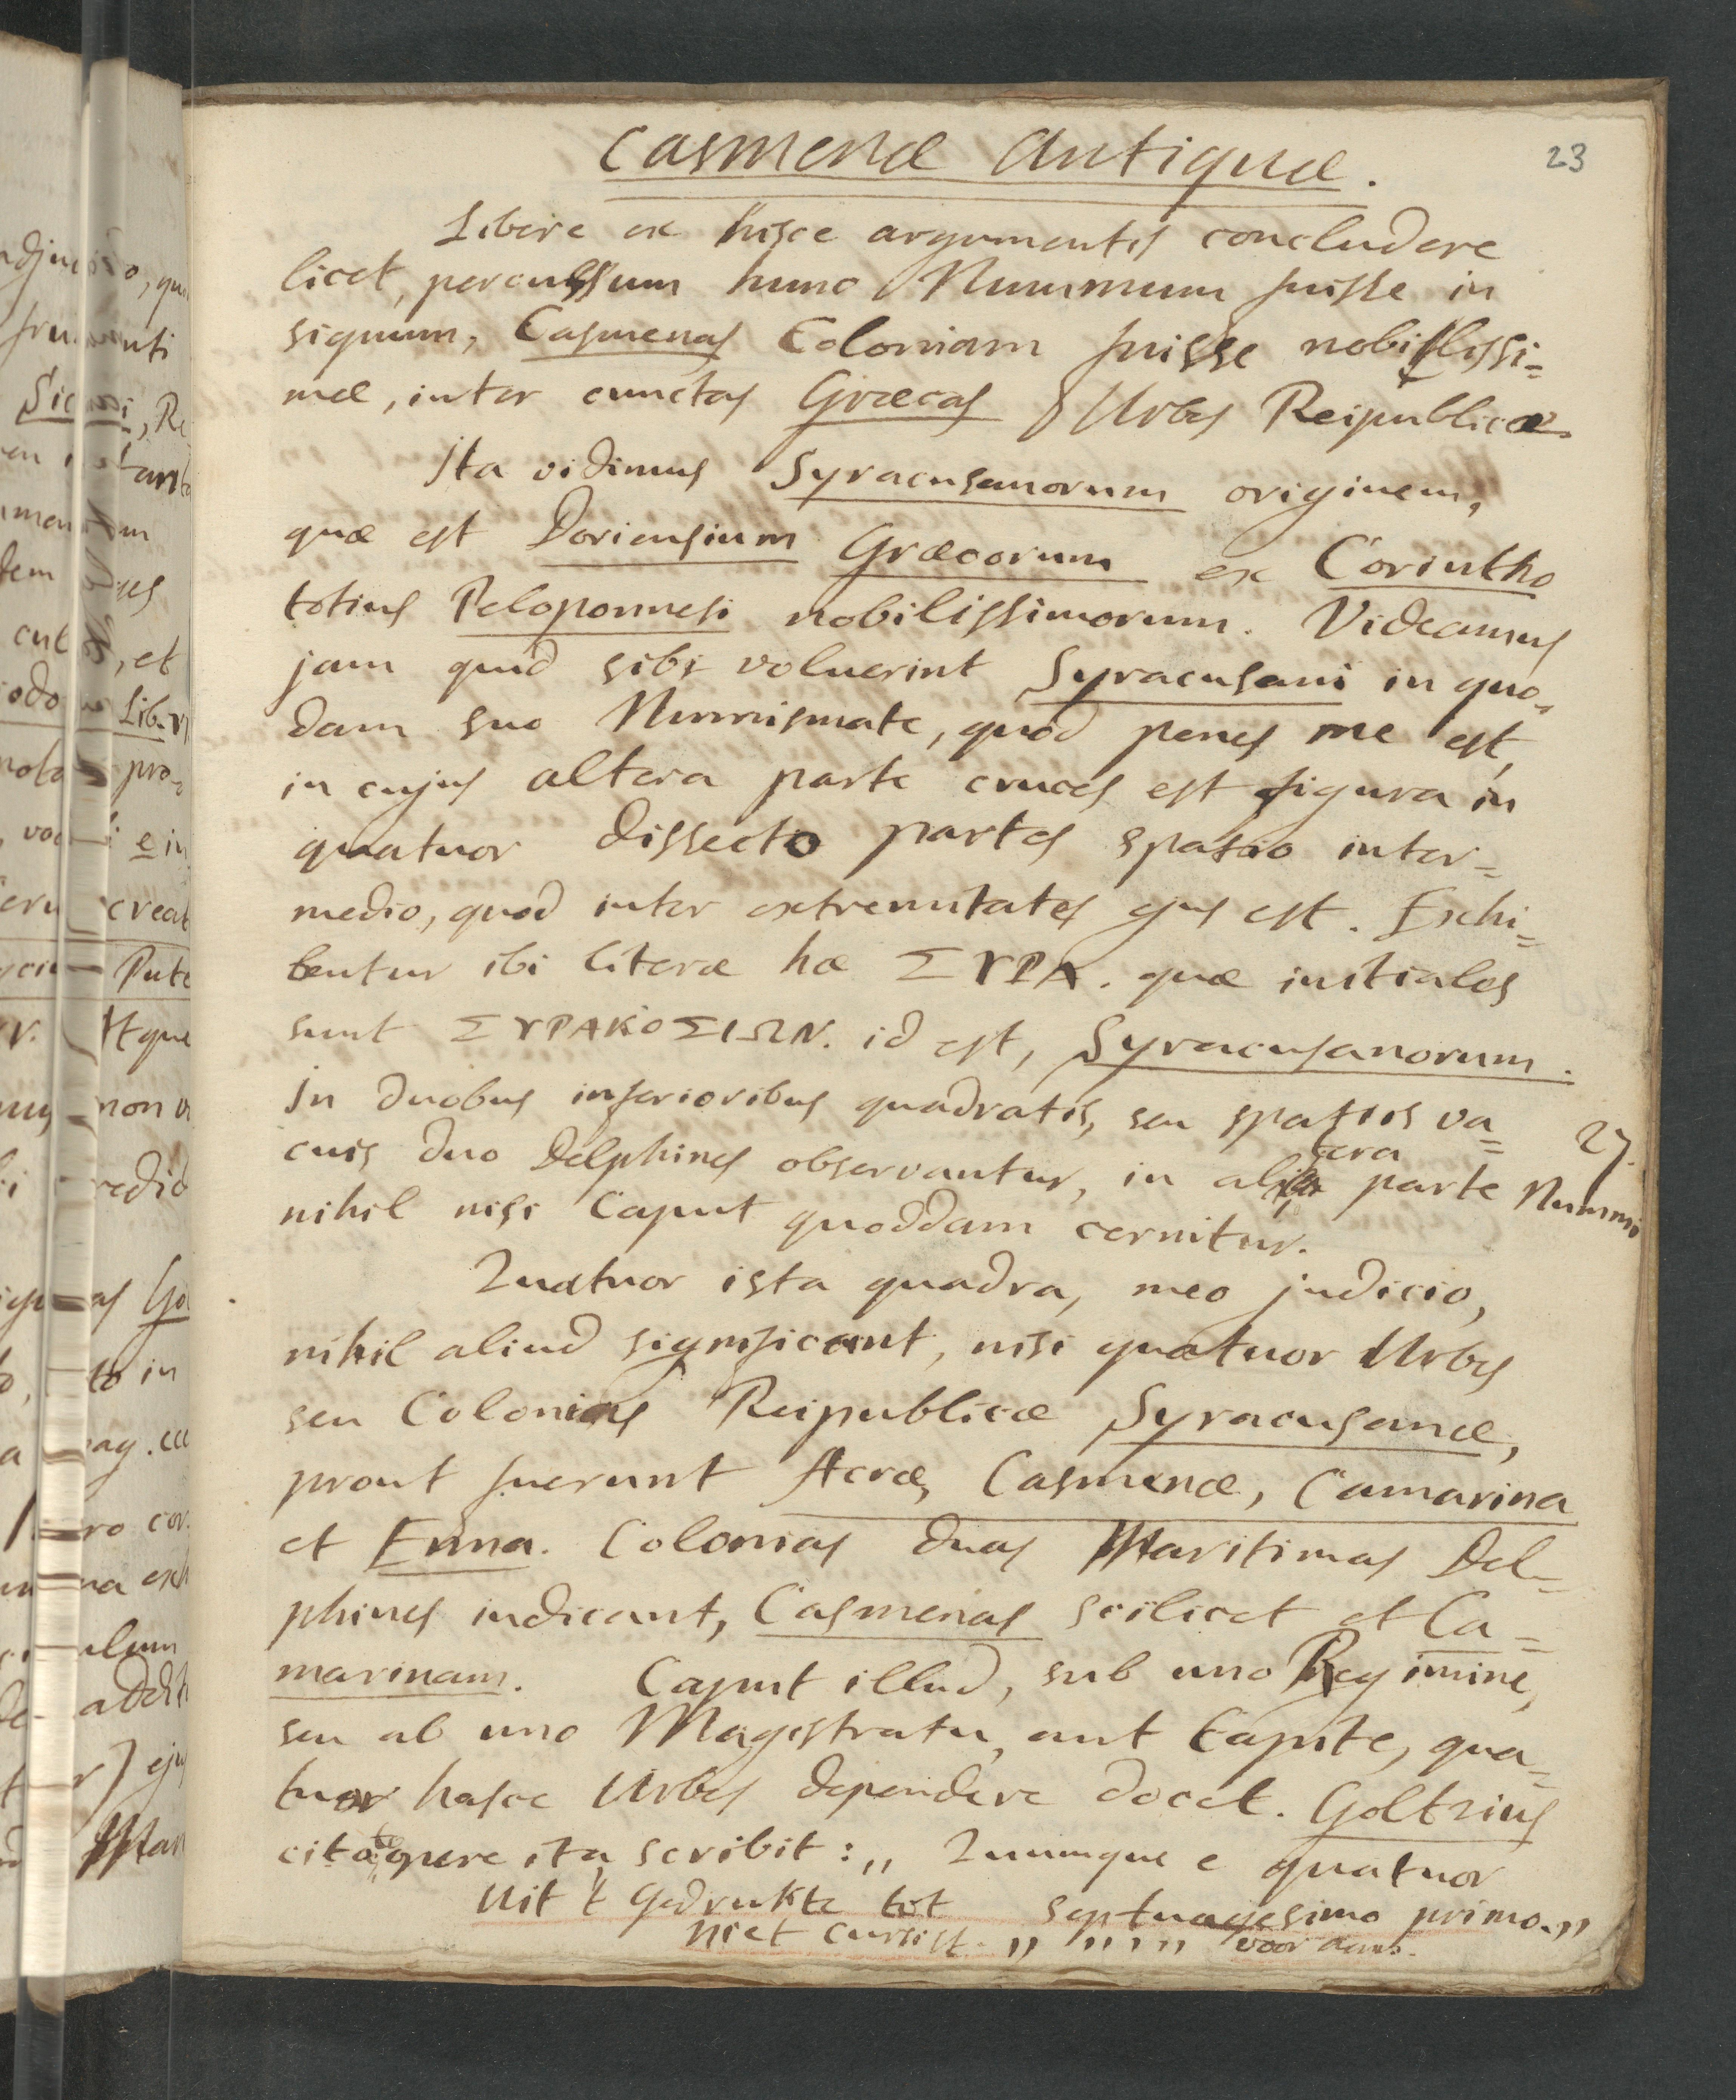 Casmenæ Antiquæ.
23
Libere ex hisce argumentis concludere
licet, percussum hunc Nummum fuisse in
signum, Casmenas Coloniam fuisse nobilissi=
mæ, inter cunctas Græcas Urbes Reipublicæ.
Ita vidimus Syracusanorum originem,
quæ est Doriensium Græcorum ex Corintho
totius Peloponnesi nobilissimorum. Videamus
jam quid sibi voluerint Syracusani in quo=
dam suo Numismate, quod penes me est,
in cujus altera parte crucis est figura in
quatuor dissecto partes spatio inter=
medio, quod inter extremitates ejus est. Exhi=
bentur ibi literæ hæ ΣΥΡΑ. quæ initiales
sunt ΣΥΡΑΚΟΣΙΩΝ. id est, Syracusanorum.
In duobus inferioribus quadratis, seu spatiis va=
27.
cuis duo Delphines observantur, in altera parte Nummi
nihil nisi Caput quoddam cernitur.
Quatuor ista quadra, meo judicio,
nihil aliud significant, nisi quatuor Urbes
seu Colonias Reipublicæ Syracusanæ,
prout fuerunt Acræ, Casmenæ, Camarina
et Enna. Colonias duas Maritimas Del=
phines indicant, Casmenas scilicet et Ca=
marinam. Caput illud, sub uno Regimine,
seu ab uno Magistratu, aut Capite, qua=
tuor hasce Urbes dependere docet. Goltzius
citato opere ita scribit: „ Quumque e quatuor
uit 't Gedrukte tot septuagesimo primo.„
niet cursist. „ „ „ „ voor aens.